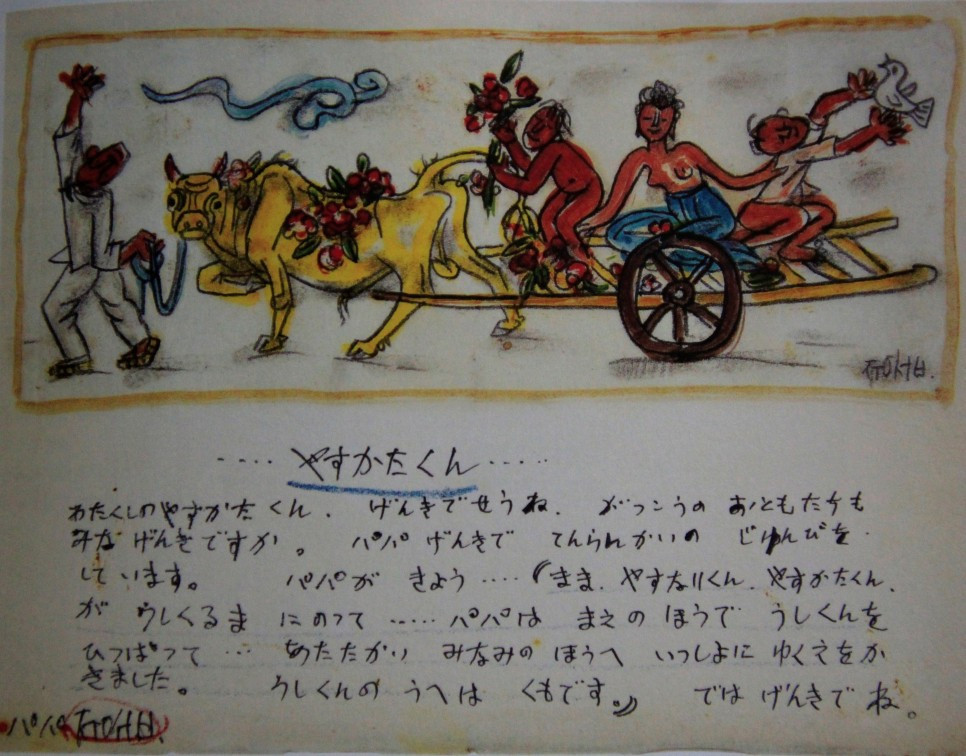 ㅈㅜㅇㅅㅓㅂ
‥‥やすかたくん‥‥
わたくしのやすかたくん、げんきでせうね。がっこうのおともたちも
みなげんきですか。パパげんきでてんらんかいのじゅんびを
しています。パパがきょう‥‥『まま、やすなりくん、やすかたくん、
がうしくるまにのって‥‥パパはまえのほうでうしくんを
ひっぱって‥‥あたたかいみなみのほうへいっしょにゆくえをか
きました。うしくんのうへはくもです。』ではげんきでね。
パパㅈㅜㅇㅅㅓㅂ